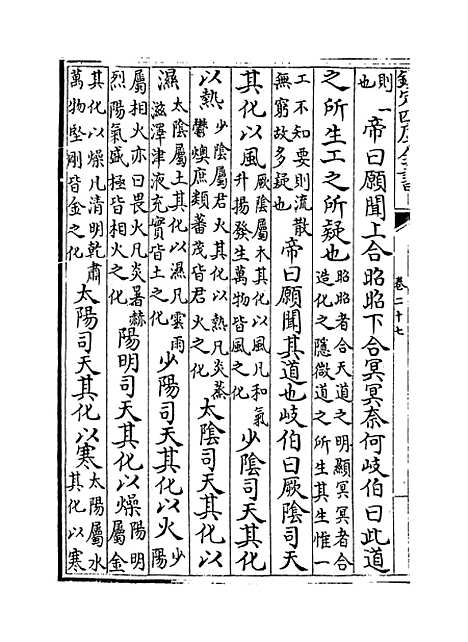 欽定四庫全書
卷二十七
則一也帝曰願聞上合昭昭下合冥冥奈何岐伯曰此道
之所生工之所疑也昭昭者合天道之明顯冥冥者合造化之隱微道之所生其生惟一
工不知要則流散無窮故多疑也帝曰願聞其道也岐伯曰厥陰司天
其化以風厥陰屬木其化以風凡和氣升揚發生萬物皆風之化少陰司天其化
以熱少陰屬君火其化以熱凡炎蒸鬱燠庶類蕃茂皆君火之化太陰司天其化以
濕太陰屬土其化以濕凡雲雨滋澤津液充實皆土之化少陽司天其化以火少陽
屬相火亦曰畏火凡炎暑赫烈陽氣盛極皆相火之化陽明司天其化以燥陽明屬金
其化以燥凡清明乾肅萬物堅剛皆金之化太陽司天其化以寒太陽屬水其化以寒